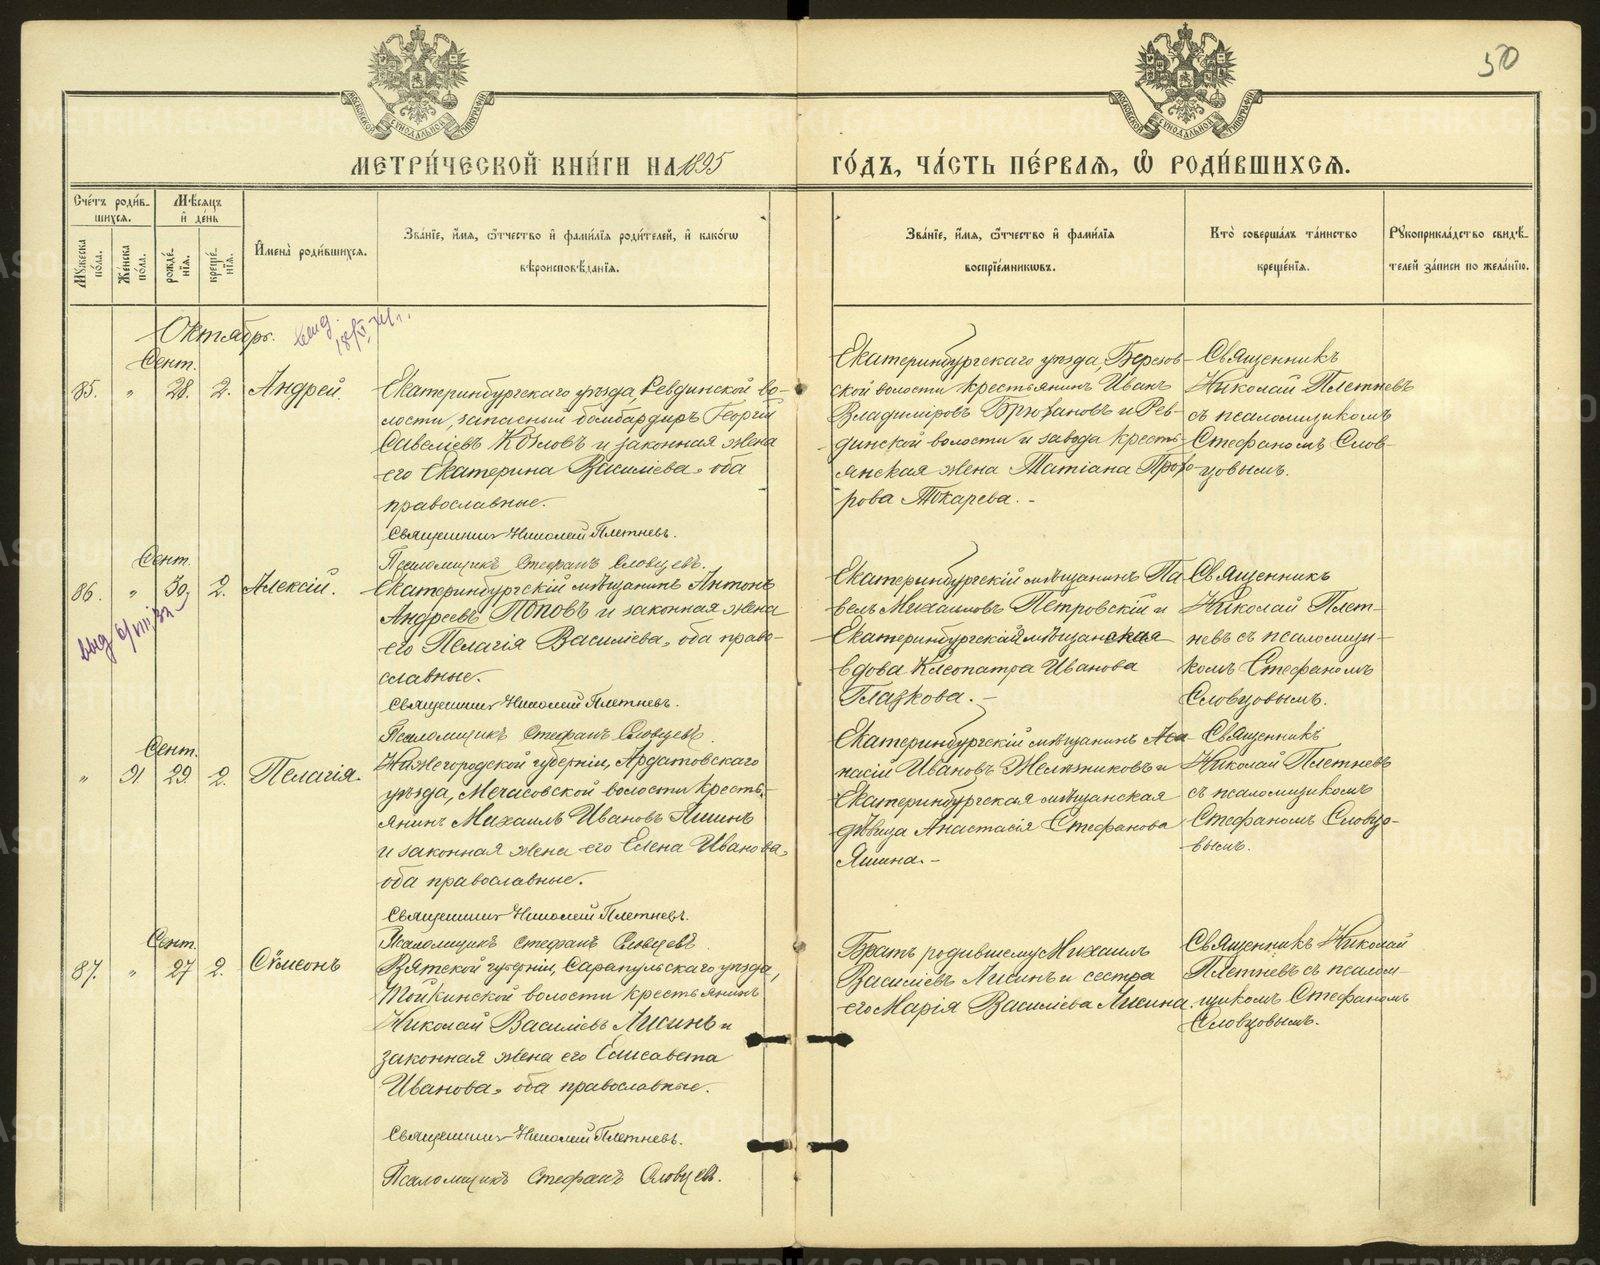 50
МЕТРИ́ЧЕСКОЙ КНИ́ГИ НА 1895 ГО́ДЪ, ЧА́СТЬ ПЕ́РВАЯ, Ѽ РОДИ́ВШИХСЯ.
Сче́тъ роди́в-
шихся.
Мѣ́сяцъ
и҆ де́нь
Мꙋ́жеска
по́ла.
Же́нска
по́ла.
рожде́-
нїя.
креще́-
нїя.
И҆мена̀ роди́вшихся.
Зва́нїе, и҆́мя, ѻ҆́тчество и҆ фами́лїя роди́телей, и҆ како́гѡ
вѣроисповѣ́данїя.
Зва́нїе, и҆́мя, ѻ҆́тчество и҆ фами́лїя
воспрїе́мникѡвъ.
Кто̀ соверша́лъ та́инство
креще́нїя.
Рꙋкоприкла́дство свидѣ́-
телей за́писи по жела́нїю.
Октябрь.
Сент.
85. " 28. 2. Андрей.
Екатеринбургскаго уѣзда Ревдинской во-
лости, запасный бомбардиръ Георгій
Савеліевъ Козловъ и законная жена
его Екатерина Василіева, оба
православные.
Священникъ Николай Плетневъ.
Псаломщикъ Стефанъ Словцевъ.
Екатеринбургскаго уѣзда, Березов-
ской волости крестьянинъ Иванъ
Владиміровъ Брюхановъ и Рев-
динской волости и завода кресть-
янская жена Татіана Прохо-
рова Токарева. -
Священникъ
Николай Плетневъ
съ псаломщикомъ
Стефаномъ Слов-
цовымъ.
Сент.
86. " 30. 2. Алексій.
выд 6/VIII 32
Екатеринбургскій мѣщанинъ Антонъ
Андреевъ Поповъ и законная жена
его Пелагія Василіева, оба право-
славные.
Священникъ Николай Плетневъ.
Псаломщикъ Стефанъ Словцевъ.
Екатеринбургскій мѣщанинъ Па-
велъ Михаиловъ Петровскій и
Екатеринбургская мѣщанская
вдова Клеопатра Иванова
Глазкова. -
Священникъ
Николай Плет-
невъ съ псаломщи-
комъ Стефаномъ
Словцовымъ.
Сент.
" 91 29 2. Пелагія.
Нижегородской губерніи, Ардатовскаго
уѣзда, Мечасовской волости кресть-
янинъ Михаилъ Ивановъ Яшинъ
и законная жена его Елена Иванова,
оба православные.
Священникъ Николай Плетневъ.
Псаломщикъ Стефанъ Словцевъ.
Екатеринбургскій мѣщанинъ Аѳа-
насій Ивановъ Желѣзниковъ и
Екатеринбургская мѣщанская
дѣвица Анастасія Стефанова
Яшина. -
Священникъ
Николай Плетневъ
съ псаломщикомъ
Стефаномъ Словцо-
вымъ.
Сент.
87. " 27 2. Сѵмеонъ
Вятской губерніи, Сарапульскаго уѣзда,
Тойкинской волости крестьянинъ
Николай Василіевъ Лисинъ и
законная жена его Елисавета
Иванова, оба православные.
Священникъ Николай Плетневъ.
Псаломщикъ Стефанъ Словцевъ.
Братъ родившему Михаилъ
Василіевъ Лисинъ и сестра
его Марія Василіева Лисина.
Священникъ Николай
Плетневъ съ псалом-
щикомъ Стефаномъ
Словцовымъ.